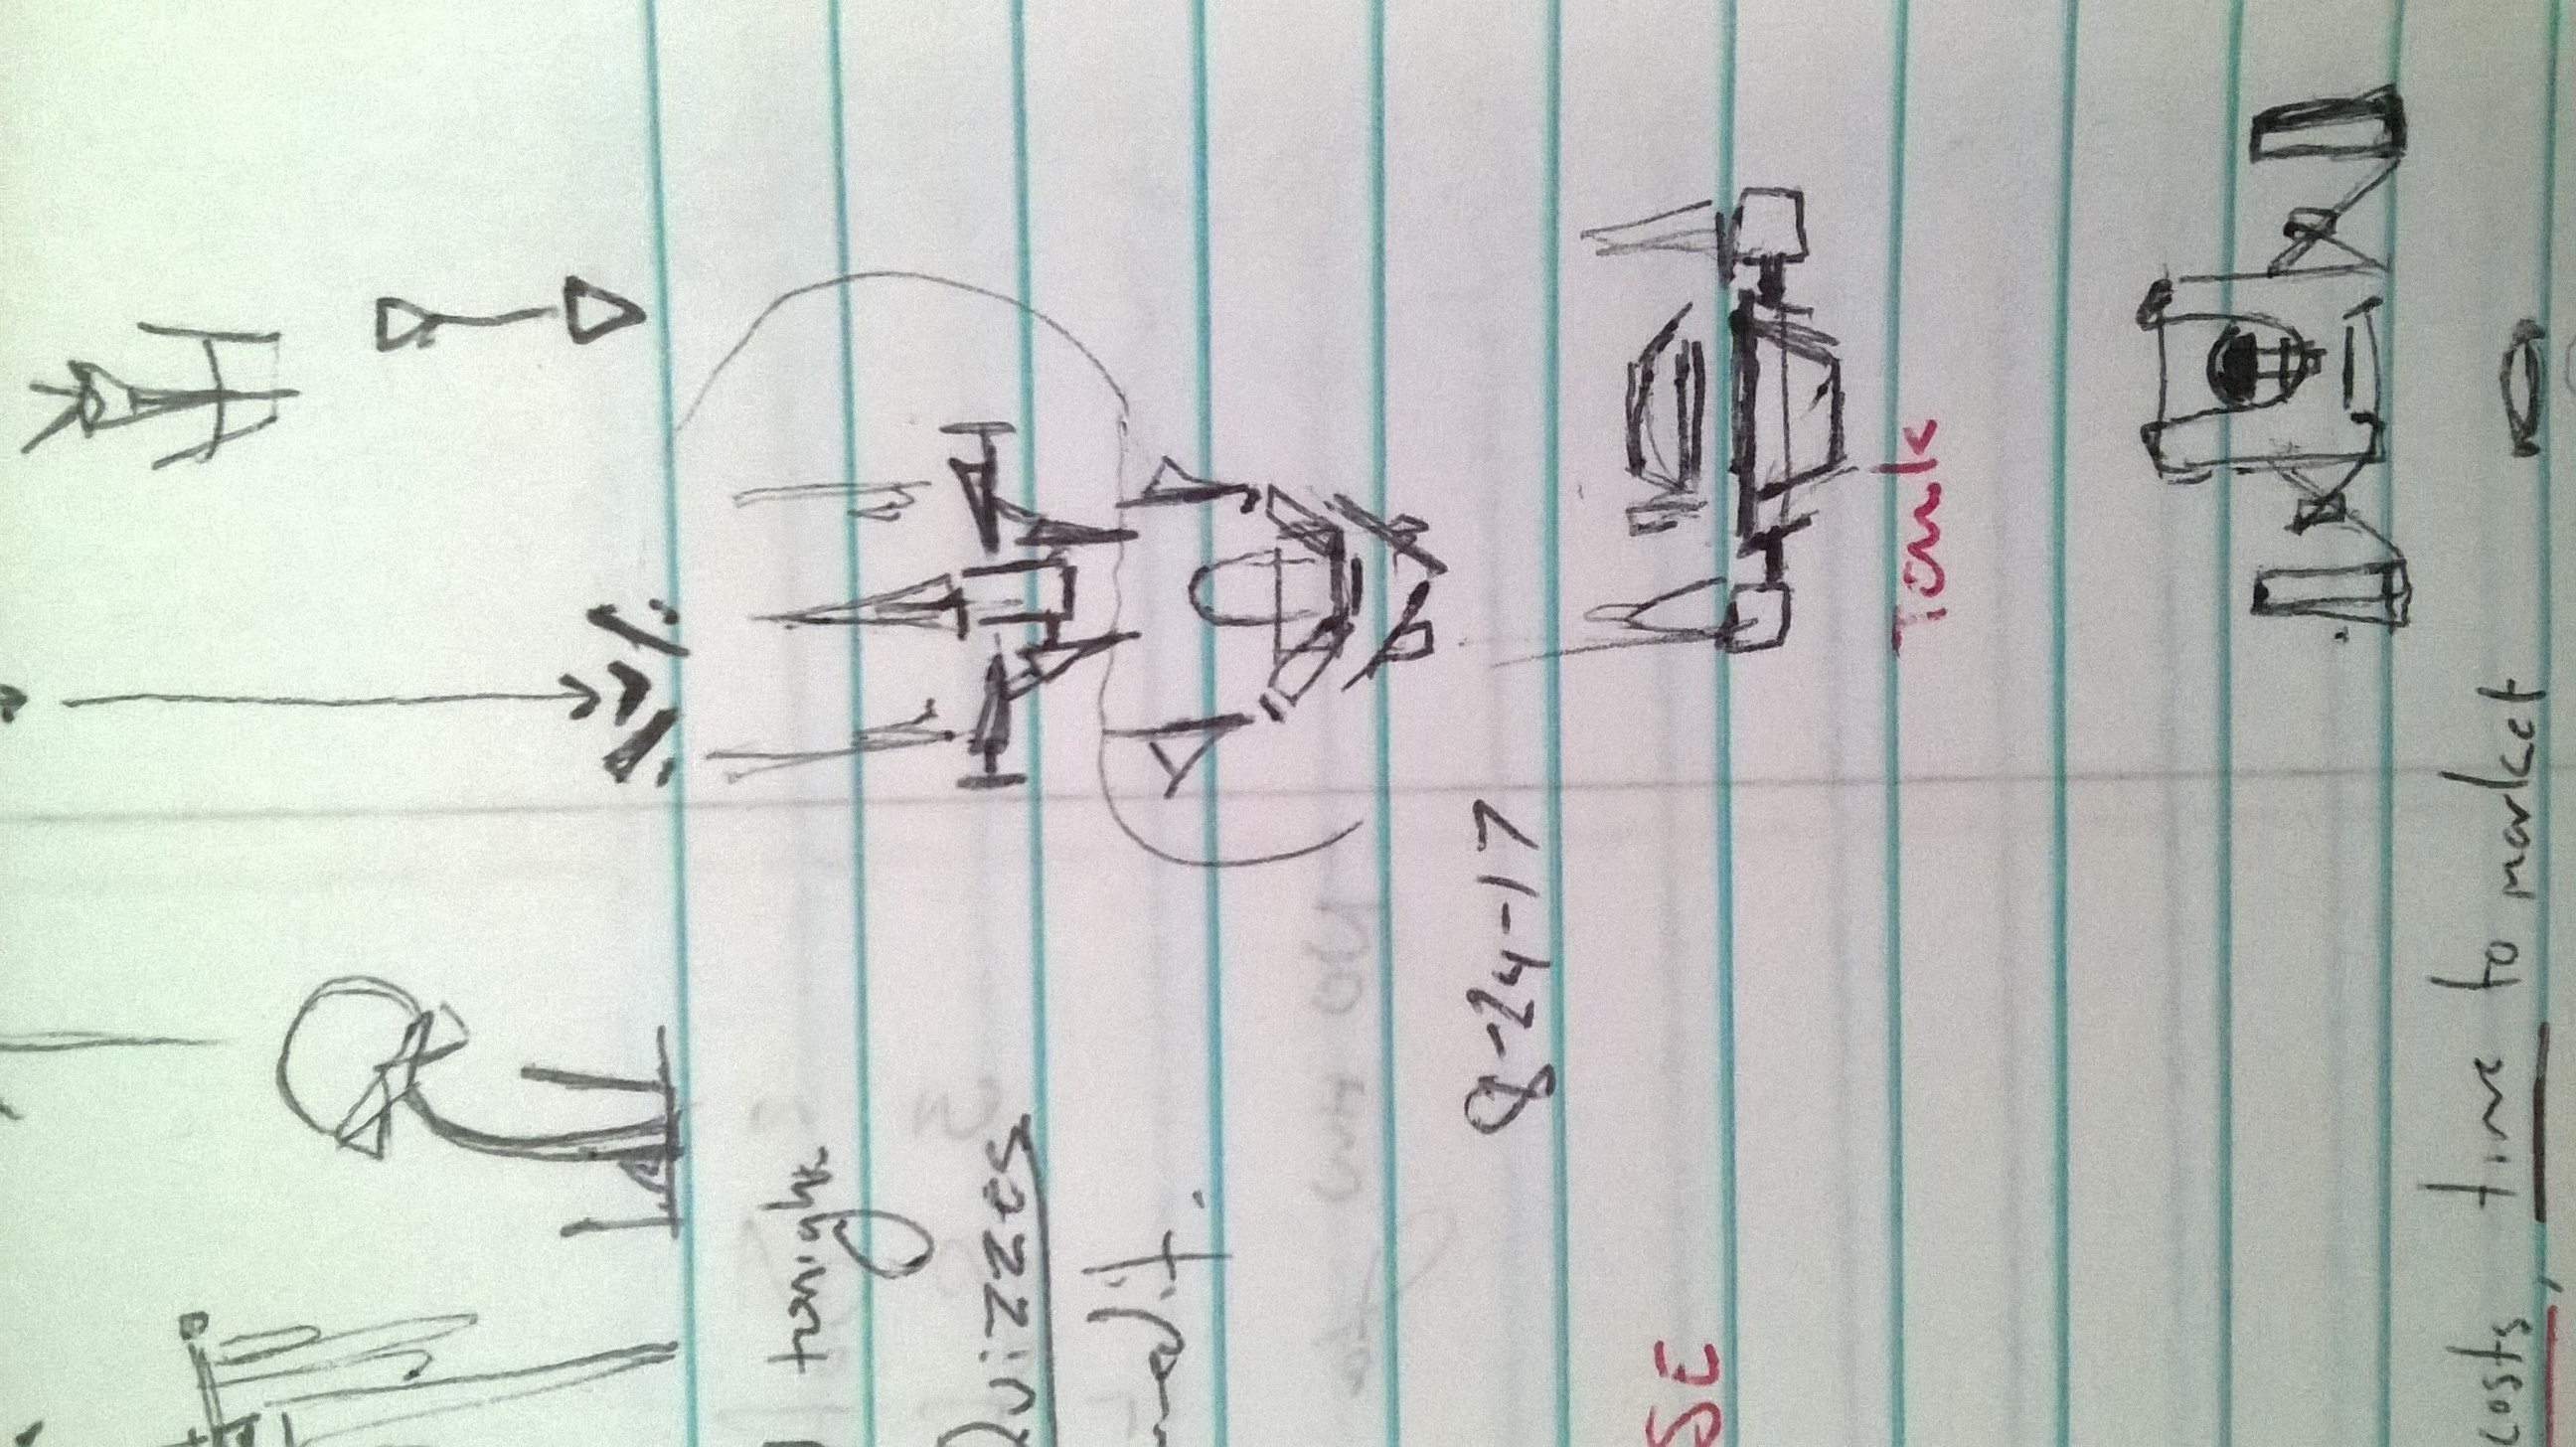 tonight
Quizzes
8-24-17
SE
Tank
costs, time to market